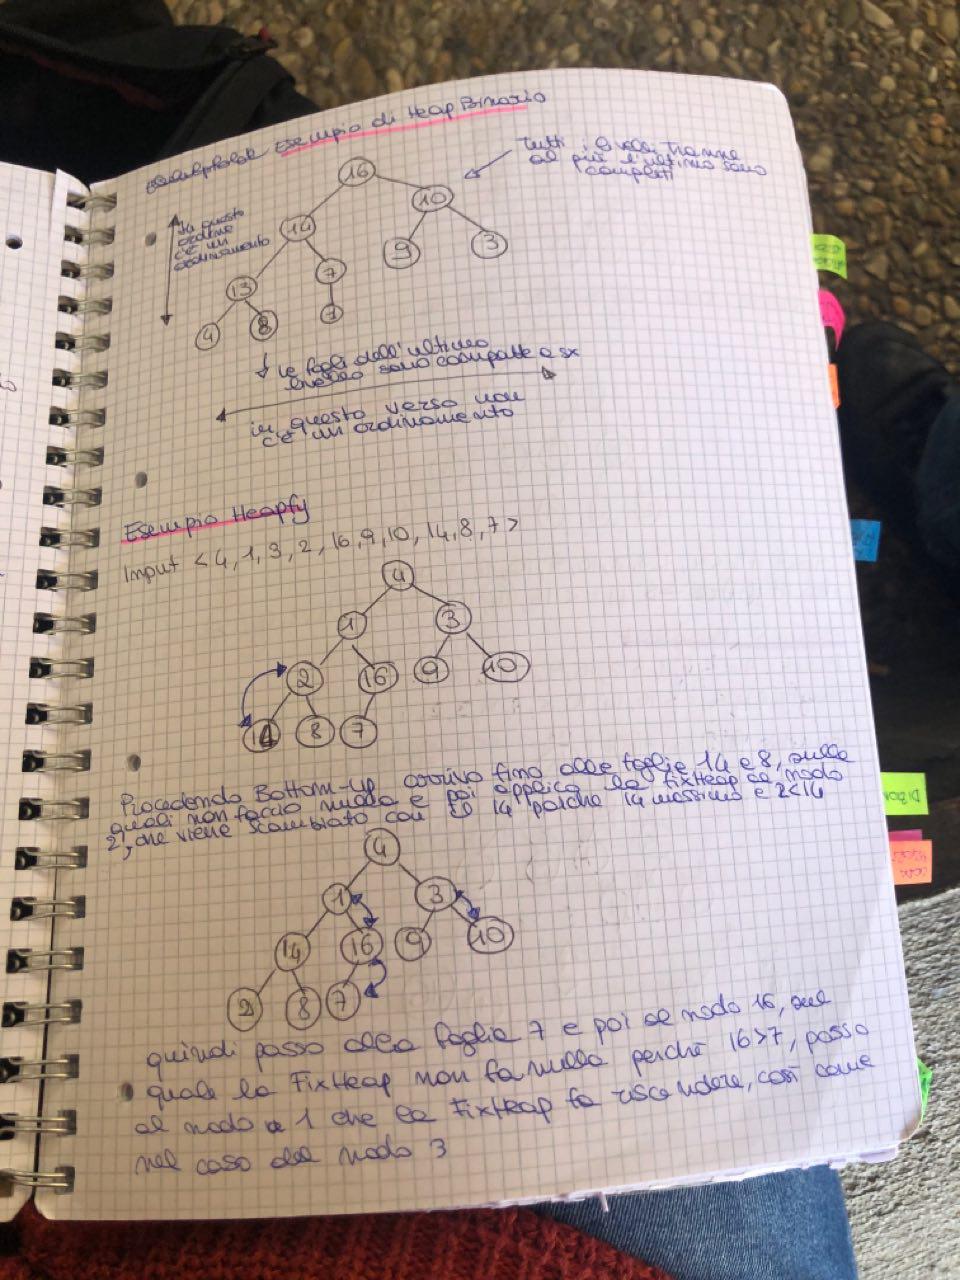 Esempio di Heap Binario
Tutti i livelli tranne
al più l'ultimo sono
completi
In questo
ordine
c'è un
ordinamento
16
14
10
13
7
9
3
4
8
1
le fogli dell'ultimo
livello sono compatte a sx
in questo verso non
c'è un ordinamento
Esempio Heapfy
Input < 4, 1, 3, 2, 16, 9, 10, 14, 8, 7 >
4
1
3
2
16
9
10
14
8
7
Procedendo Bottom-Up arrivo fino alle foglie 14 e 8, sulle
quali non faccio nulla e poi applico la FixHeap al nodo
2, che viene scambiato con 14 poiché 14 massimo e 2<14
4
1
3
14
16
9
10
2
8
7
quindi passo alla foglia 7 e poi al nodo 16, sul
quale la FixHeap non fa nulla perché 16>7, passo
al nodo 1 che la FixHeap fa riscendere, così come
nel caso del nodo 3